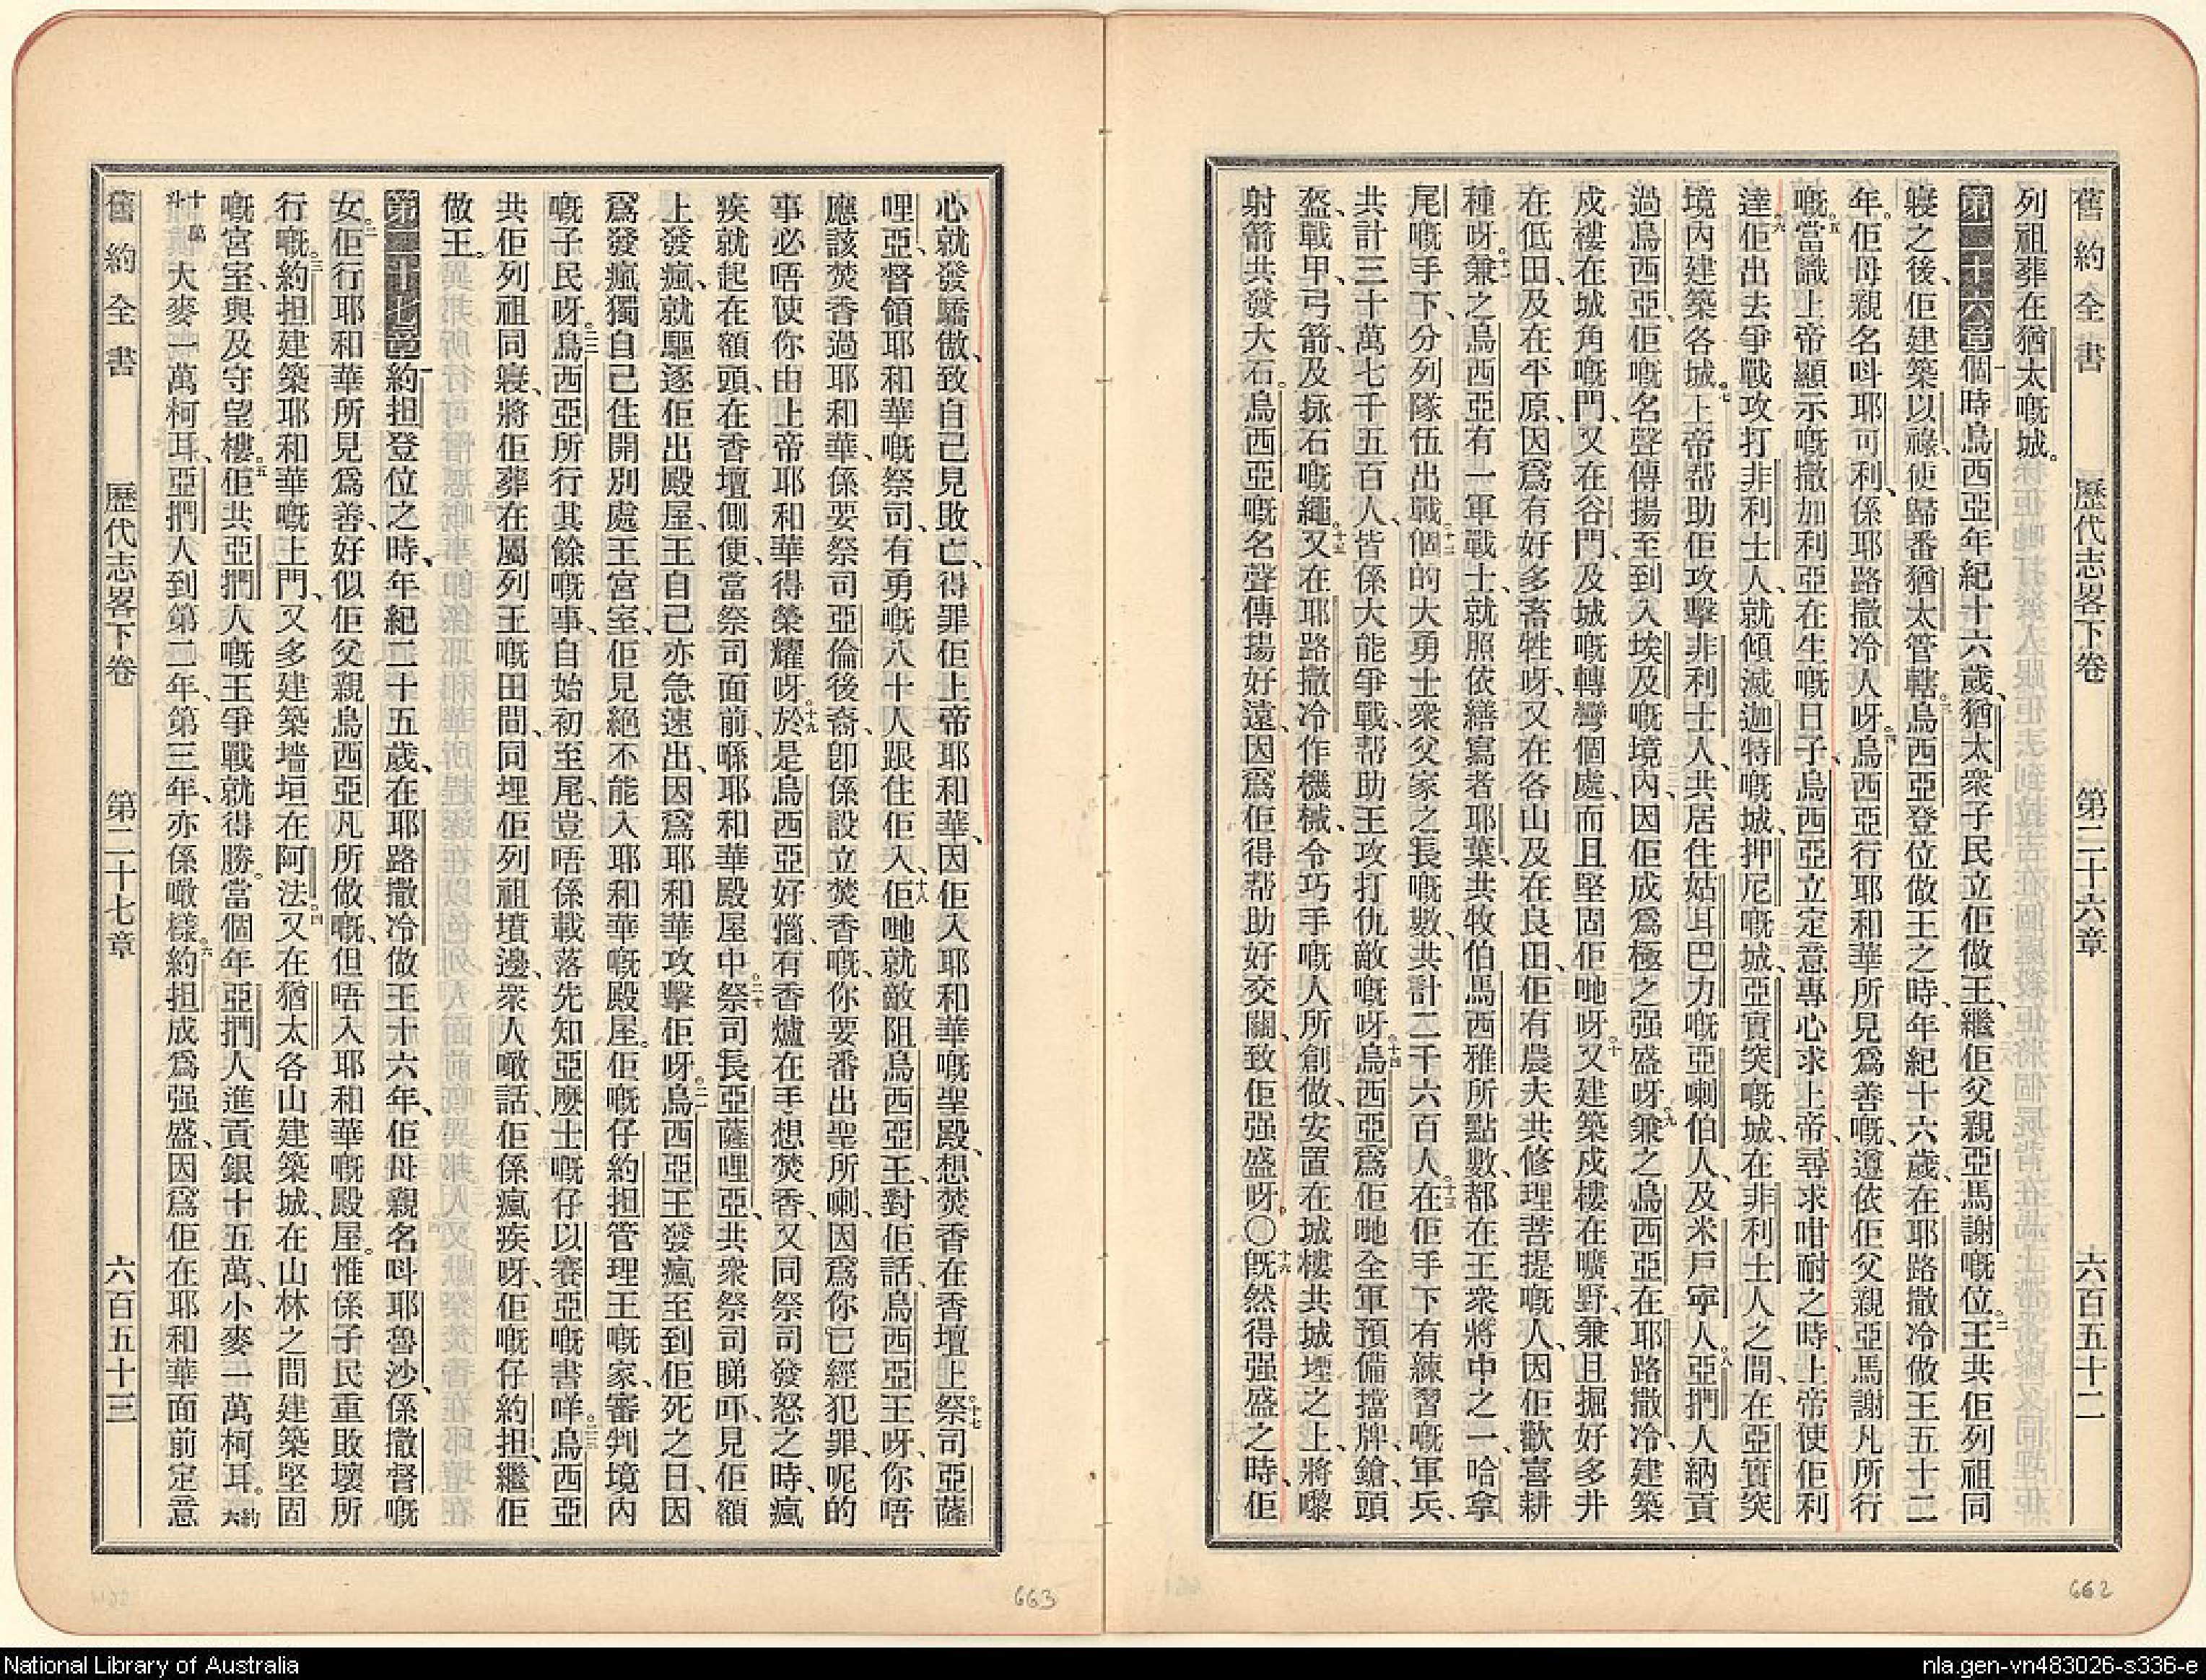 舊約全書　歷代志畧下卷　第二十六章　六百五十二
列祖葬在猶太嘅城。
第二十六章 一個時烏西亞年紀十六歲、猶太衆子民立佢做王、繼佢父親亞馬謝嘅位。二王共佢列祖同
寢之後、佢建築以祿、使歸番猶太管轄。三烏西亞登位做王之時、年紀十六歲、在耶路撒冷做王五十二
年。佢母親名呌耶可利、係耶路撒冷人呀。四烏西亞行耶和華所見爲善嘅、遵依佢父親亞馬謝凡所行
嘅。五當識上帝顯示嘅撒加利亞在生嘅日子、烏西亞立定意專心求上帝、尋求咁耐之時、上帝使佢利
達。六佢出去爭戰攻打非利士人、就傾滅迦特嘅城、押尼嘅城、亞實突嘅城、在非利士人之間、在亞實突
境內建築各城。七上帝帮助佢攻擊非利士人、共居住姑耳巴力嘅亞喇伯人、及米戶寧人。八亞捫人納貢
過烏西亞、佢嘅名聲傳揚至到入埃及嘅境內、因佢成爲極之强盛呀。九兼之烏西亞在耶路撒冷、建築
戍樓在城角嘅門、又在谷門、及城嘅轉彎個處、而且堅固佢哋呀。十又建築戍樓在曠野、兼且掘好多井
在低田、及在平原、因爲有好多畜牲呀、又在各山及在良田、佢有農夫共修理菩提嘅人、因佢歡喜耕
種呀。十一兼之烏西亞有一軍戰士、就照依繕寫者耶葉、共牧伯馬西雅所點數、都在王衆將中之一、哈拿
尾嘅手下、分列隊伍出戰。十二個的大勇士衆父家之長嘅數、共計二千六百人。十三在佢手下有練習嘅軍兵、
共計三十萬七千五百人、皆係大能爭戰、帮助王攻打仇敵嘅呀。十四烏西亞爲佢哋全軍預備擋牌、鎗、頭
盔、戰甲、弓箭、及揼石嘅繩。十五又在耶路撒冷作機械、令巧手嘅人所創做、安置在城樓共城堙之上、將嚟
射箭共發大石。烏西亞嘅名聲傳揚好遠、因爲佢得帮助好交關、致佢强盛呀。〇十六旣然得强盛之時、佢
662
心就發驕傲、致自己見敗亡、得罪佢上帝耶和華、因佢入耶和華嘅聖殿、想焚香在香壇上。十七祭司亞薩
哩亞、督領耶和華嘅祭司、有勇嘅八十人、跟住佢入、十八佢哋就敵阻烏西亞王、對佢話、烏西亞王呀、你唔
應該焚香過耶和華、係要祭司亞倫後裔、卽係設立焚香嘅、你要番出聖所喇、因爲你已經犯罪、呢的
事必唔使你由上帝耶和華得榮耀呀。十九於是烏西亞好惱、有香爐在手想焚香、又同祭司發怒之時、瘋
疾就起在額頭、在香壇側便、當祭司面前、喺耶和華殿屋中。二十祭司長亞薩哩亞、共衆祭司睇吓、見佢額
上發瘋、就驅逐佢出殿屋、王自己亦急速出、因爲耶和華攻擊佢呀。二一烏西亞王發瘋至到佢死之日、因
爲發瘋獨自己住開別處王宮室、佢見絕不能入耶和華嘅殿屋。佢嘅仔約担管理王嘅家、審判境內
嘅子民呀。二二烏西亞所行其餘嘅事、自始初至尾、豈唔係載落先知亞麽士嘅仔以賽亞嘅書咩。二三烏西亞
共佢列祖同寢、將佢葬在屬列王嘅田間、同埋佢列祖墳邊、衆人噉話、佢係瘋疾呀、佢嘅仔約担、繼佢
做王。
第二十七章 一約担登位之時、年紀二十五歲、在耶路撒冷做王十六年、佢母親名呌耶魯沙、係撒督嘅
女。二佢行耶和華所見爲善、好似佢父親烏西亞凡所做嘅、但唔入耶和華嘅殿屋。惟係子民重敗壞所
行嘅。三約担建築耶和華嘅上門、又多建築墻垣在阿法。四又在猶太各山建築城、在山林之間建築堅固
嘅宮室、與及守望樓。五佢共亞捫人嘅王爭戰就得勝。當個年亞捫人進貢銀十五萬、小麥一萬柯耳。約六
十萬斗 大麥一萬柯耳、亞捫人到第二年、第三年、亦係噉樣。六約担成爲强盛、因爲佢在耶和華面前定意
舊約全書　歷代志畧下卷　第二十七章　六百五十三
663
National Library of Australia
nla.gen-vn483026-s336-e